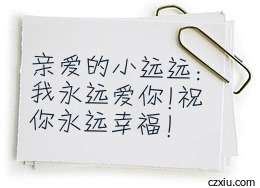 亲爱的小远远:
我永远爱你!祝
你永远幸福!
czxiu.com